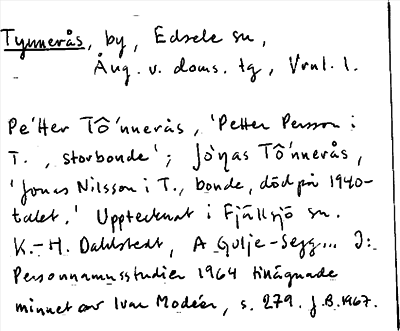 Tynnerås, by, Edsele sn,
Ång. v. doms. tg, Vrnl. l.
Pe´tter Tô´nnerås, 'Petter Persson i
T., storbonde'; Jò`nas Tô´nnerås,
'Jonas Nilsson i T., bonde, död på 1940-
talet.' Upptecknat i Fjällsjö sn.
K.-H. Dahlstedt, A Gulje-Segg... I:
Personnamnsstudier 1964 tillägnade
minnet av Ivar Modéer, s. 279. J.B. 1967.